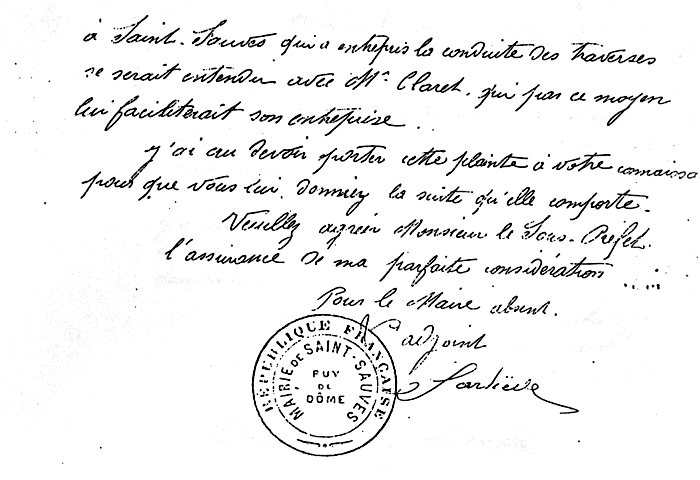 à Saint-Sauves qui a entrepris la conduite des traverses
se serait entendu avec Mr Claret, qui par ce moyen
lui faciliterait son entreprise.
J'ai cru devoir porter cette plainte à votre connaissa
pour que vous lui donniez la suite qu'elle comporte.
Veuillez agréer Monsieur le Sous-Préfet.
l'assurance de ma parfaite considération
Pour le Maire absent.
L'adjoint
RÉPUBLIQUE FRANÇAISE
MAIRIE DE SAINT-SAUVES
PUY
DE
DÔME